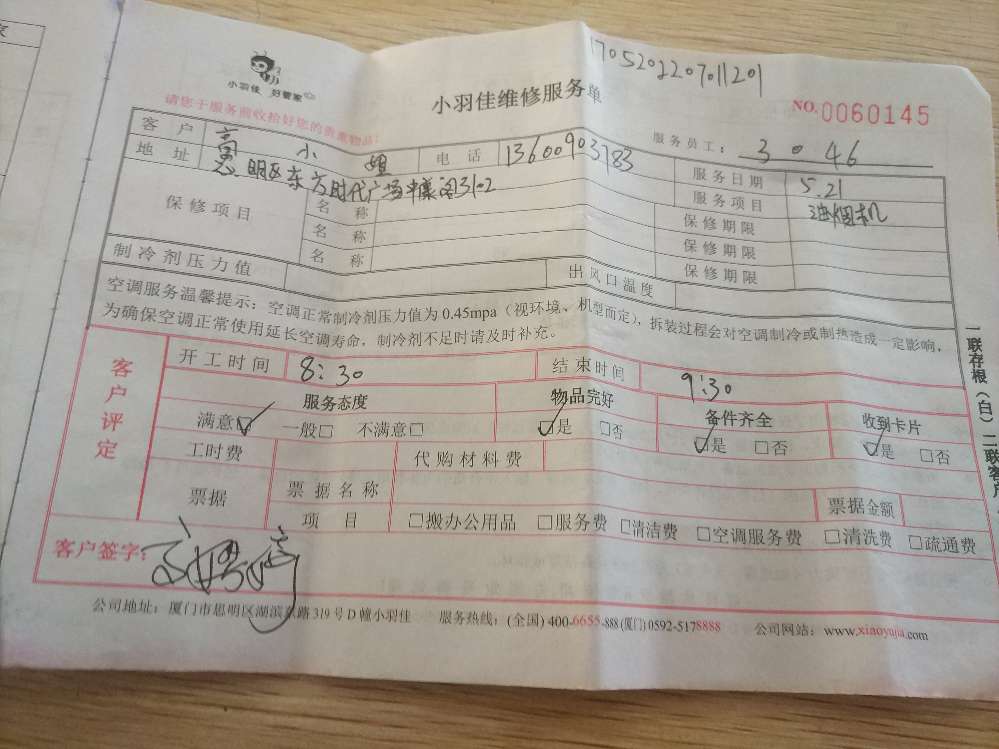 小羽佳 好管家
请您于服务前收拾好您的贵重物品!
小羽佳维修服务单
1705202207011201
NO.0060145
服务员工: 3046
客户 高小姐 电话 13600903783 服务日期 5.21
地址 思明区东方时代广场 3102 服务项目 油烟机
保修项目 名称 保修期限
名称 保修期限
名称 保修期限
制冷剂压力值 出风口温度
空调服务温馨提示:空调正常制冷剂压力值为0.45mpa(视环境、机型而定),拆装过程会对空调制冷或制热造成一定影响,
为确保空调正常使用延长空调寿命,制冷剂不足时请及时补充。
客户评定
开工时间 8:30 结束时间 9:30
服务态度 物品完好 备件齐全 收到卡片
满意☑ 一般□ 不满意□ ☑是 □否 ☑是 □否 ☑是 □否
工时费 代购材料费
票据 票据名称 票据金额
项目 □搬办公用品 □服务费 □清洁费 □空调服务费 □清洗费 □疏通费
客户签字:
公司地址:厦门市思明区湖滨东路319号D幢小羽佳 服务热线:(全国)400-6655-888(厦门)0592-5178888 公司网站:www.xiaoyujia.com
一联存根(白) 二联客户